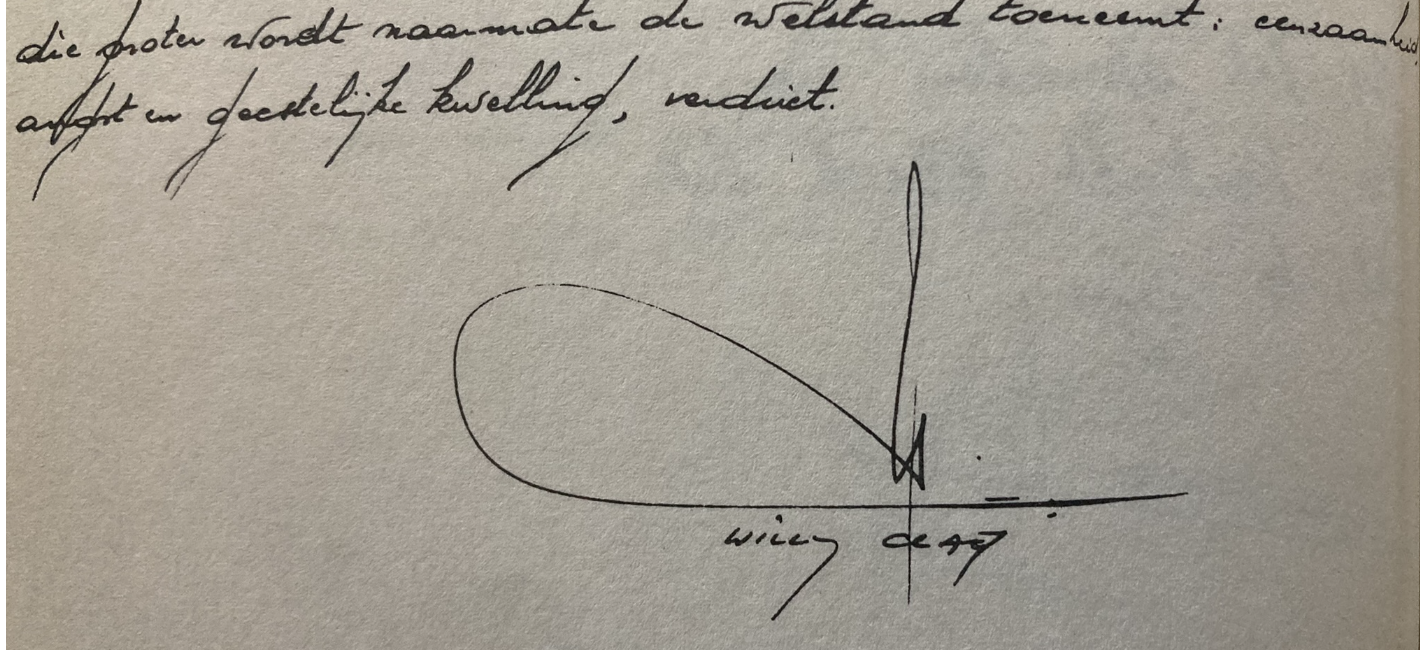 die groter wordt naarmate de welstand toeneemt: eenzaamheid,
angst en geestelijke kwelling, verdriet.
Willy Claes